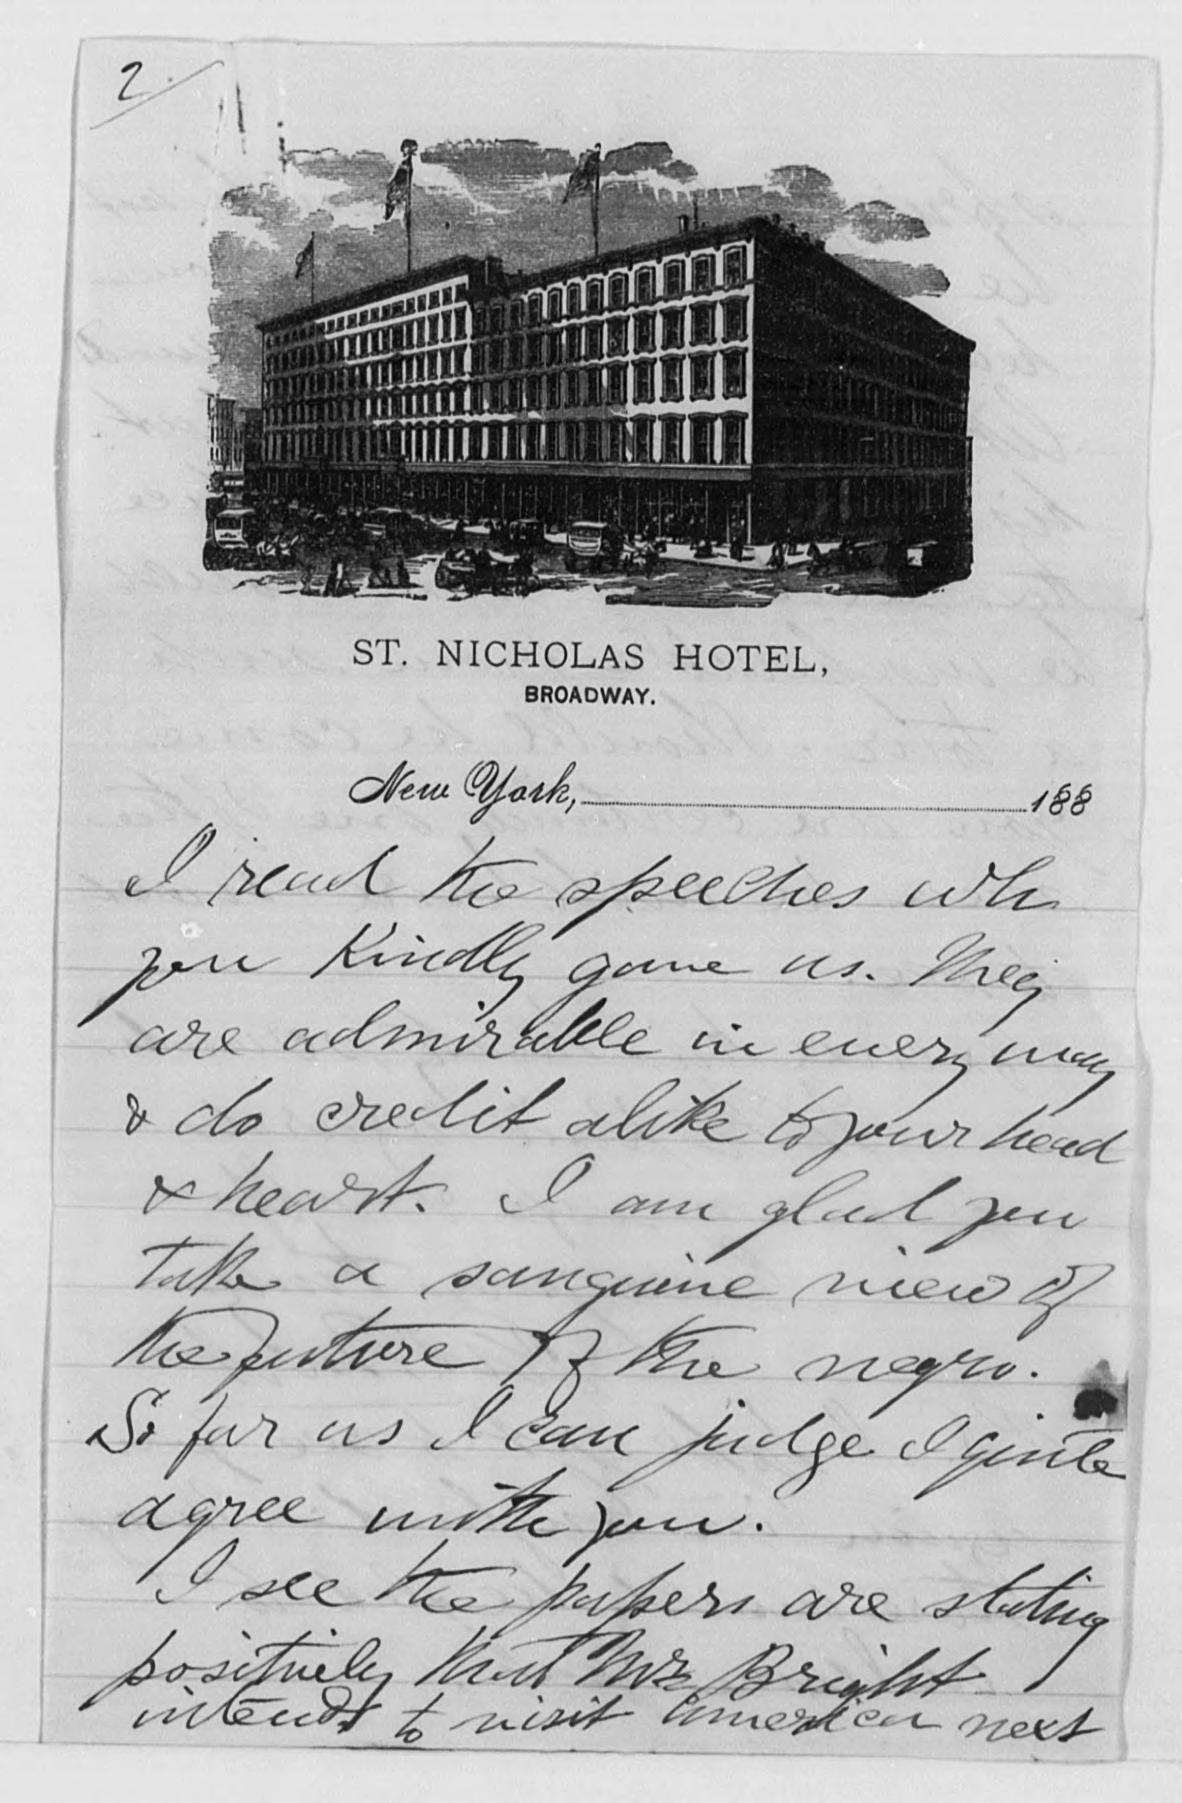 2.
ST. NICHOLAS HOTEL,
BROADWAY.
New York, 188
I read the speeches wh
you kindly gave us. They
are admirable in every way
& do credit alike to your head
& heart. I am glad you
take a sanguine view of
the future of the negro.
So far as I can judge I quite
agree with you.
I see the papers are stating
positively that Mr Bright
intends to visit America next